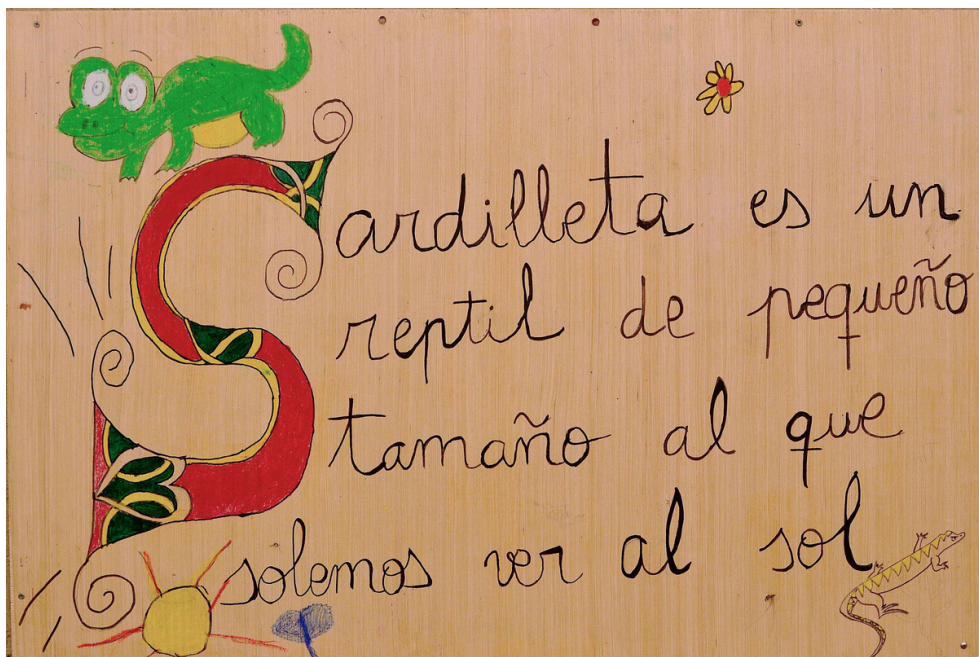 Sardilleta es un
reptil de pequeño
tamaño al que
solemos ver al sol